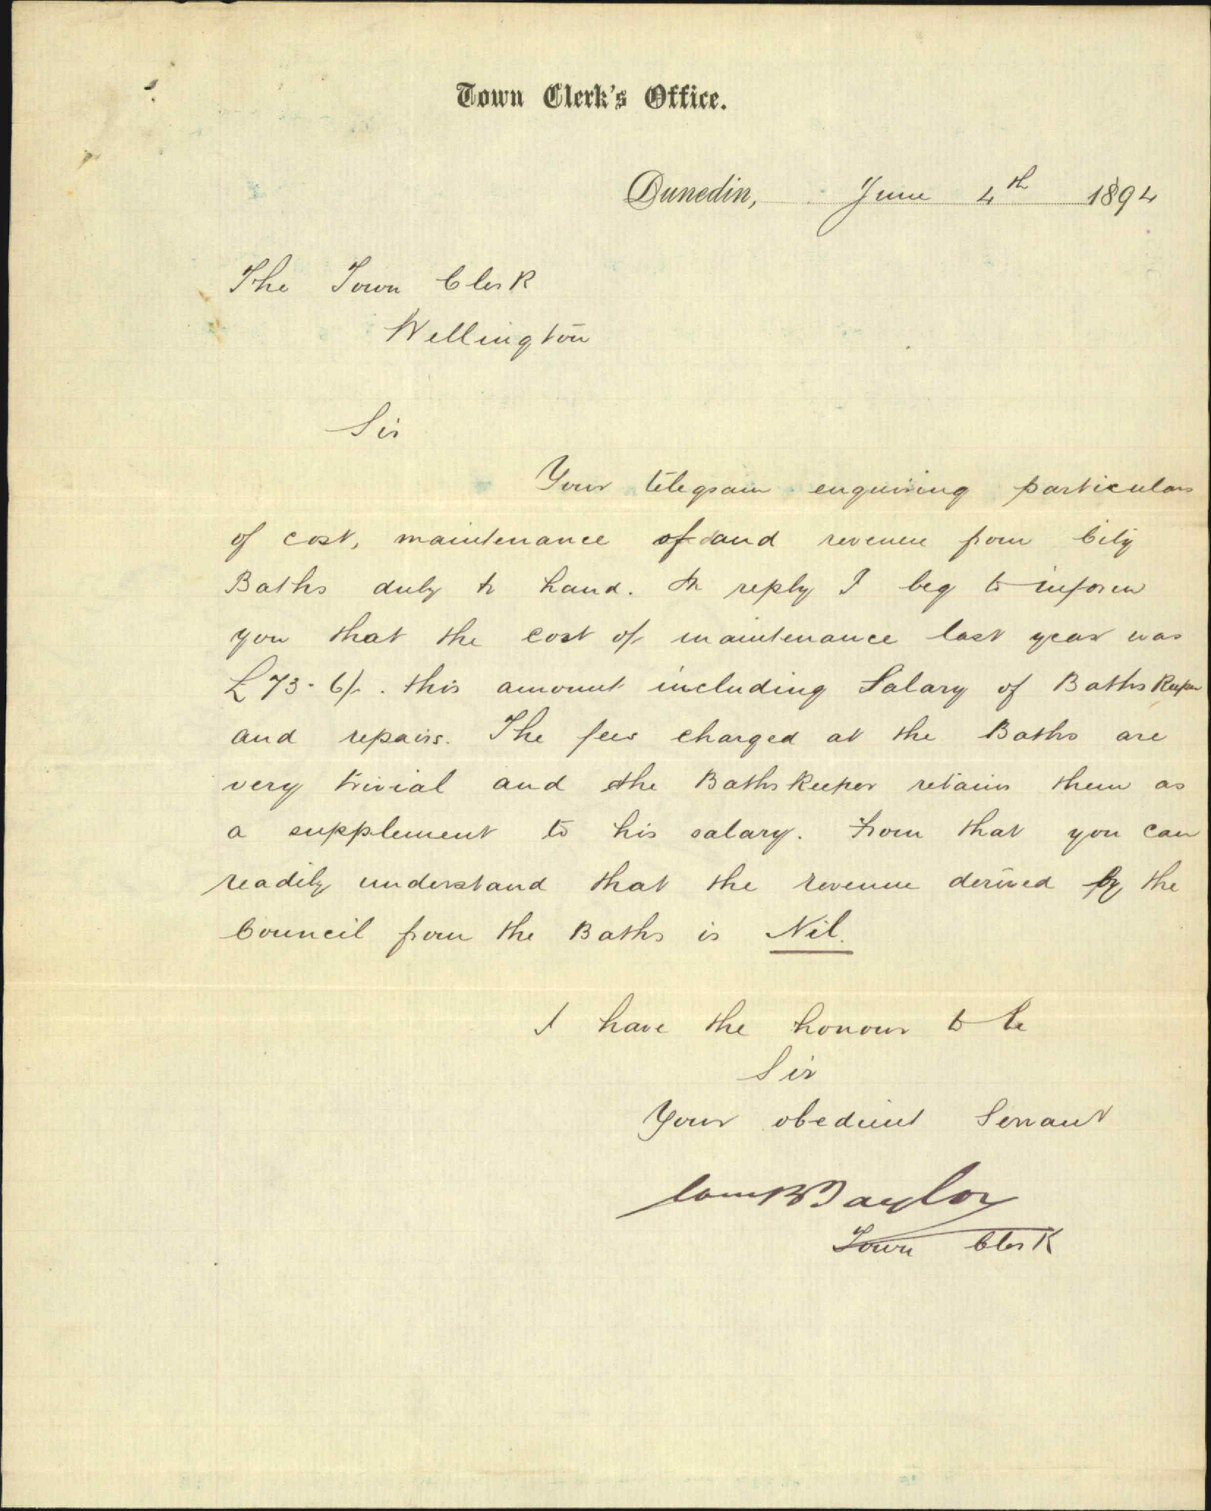 Town Clerk's Office.
Dunedin, June 4th 1894
The Town Clerk
Wellington
Sir
Your telegram enquiring particulars
of cost, maintenance of and revenue from City
Baths duly to hand. In reply I beg to inform
you that the cost of maintenance last year was
£73-6/-. this amount including Salary of Baths Keeper
and repairs. The fees charged at the Baths are
very trivial and the Baths Keeper retains them as
a supplement to his salary. From that you can
readily understand that the revenue derived by the
Council from the Baths is Nil.
I have the honour to be
Sir
Your obedient Servant
Wm B Taylor
Town Clerk